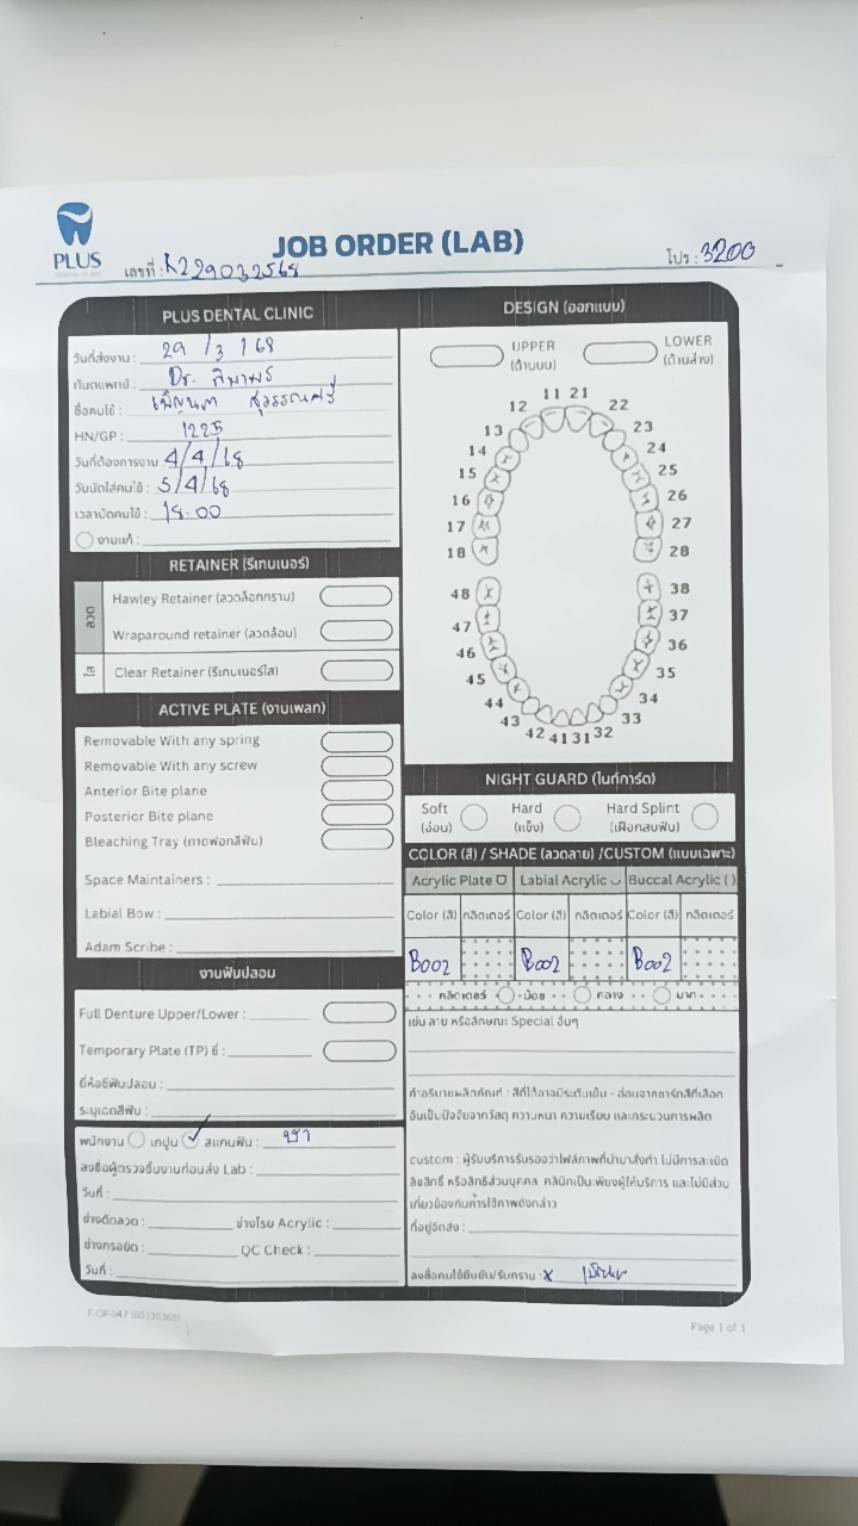 PLUS
JOB ORDER (LAB)
เลขที่ : R229032568
โปร : 3200
PLUS DENTAL CLINIC
วันที่ส่งงาน : 29 / 3 / 68
ทันตแพทย์ : Dr.
ชื่อคนไข้ :
HN/GP : 1225
วันที่ต้องการงาน 4/4/68
วันนัดใส่คนไข้ : 5/4/68
เวลานัดคนไข้ : 18.00
งานแก้ :
RETAINER (รีเทนเนอร์)
ลวด
Hawley Retainer (ลวดล็อกกราม)
Wraparound retainer (ลวดล้อม)
ใส
Clear Retainer (รีเทนเนอร์ใส)
ACTIVE PLATE (งานเพลท)
Removable With any spring
Removable With any screw
Anterior Bite plane
Posterior Bite plane
Bleaching Tray (ถาดฟอกสีฟัน)
Space Maintainers :
Labial Bow :
Adam Scribe :
งานฟันปลอม
Full Denture Upper/Lower :
Temporary Plate (TP) ซี่ :
ยี่ห้อซี่ฟันปลอม :
ระบุเฉดสีฟัน :
พนักงาน เทปูน สแกนฟัน :
ลงชื่อผู้ตรวจชิ้นงานก่อนส่ง Lab :
วันที่ :
ช่างดัดลวด : ช่างโรย Acrylic :
ช่างกรอขัด : QC Check :
วันที่ :
DESIGN (ออกแบบ)
UPPER
(ด้านบน)
LOWER
(ด้านล่าง)
11 21
12 22
13 23
14 24
15 25
16 26
17 27
18 28
48 38
47 37
46 36
45 35
44 34
43 33
42 41 31 32
NIGHT GUARD (ไนท์การ์ด)
Soft
(อ่อน)
Hard
(แข็ง)
Hard Splint
(เฝือกสบฟัน)
COLOR (สี) / SHADE (ลวดลาย) /CUSTOM (แบบเฉพาะ)
Acrylic Plate Labial Acrylic Buccal Acrylic ( )
Color (สี) กลิตเตอร์ Color (สี) กลิตเตอร์ Color (สี) กลิตเตอร์
B002 B002 B002
กลิตเตอร์ น้อย กลาง มาก
เช่น ลาย หรือลักษณะ Special อื่นๆ
คำอธิบายผลิตภัณฑ์ : สีที่ได้อาจมีระดับเข้ม - อ่อนจากชาร์ทสีที่เลือก
อันเป็นปัจจัยจากวัสดุ ความหนา ความเรียบ และกระบวนการผลิต
custom : ผู้รับบริการรับรองว่าไฟล์ภาพที่นำมาสั่งทำ ไม่มีการละเมิด
ลิขสิทธิ์ หรือสิทธิส่วนบุคคล คลินิกเป็นเพียงผู้ให้บริการ และไม่มีส่วน
เกี่ยวข้องกับการใช้ภาพดังกล่าว
ที่อยู่จัดส่ง :
ลงชื่อคนไข้ยืนยัน/รับทราบ : x
Page 1 of 1